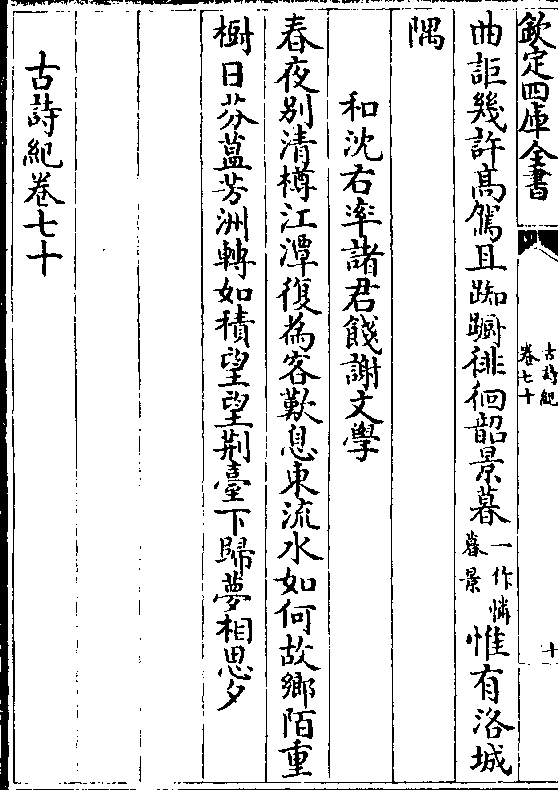 欽定四庫全書
古詩紀
卷七十
十
曲詎幾許髙駕且踟蹰徘徊韶景暮
一作憐
暮景
惟有洛城
隅
和沈右率諸君餞謝文學
春夜别清樽江潭復為客歎息東流水如何故鄉陌重
樹日芬葐芳洲轉如積望望荆臺下歸夢相思夕
古詩紀卷七十